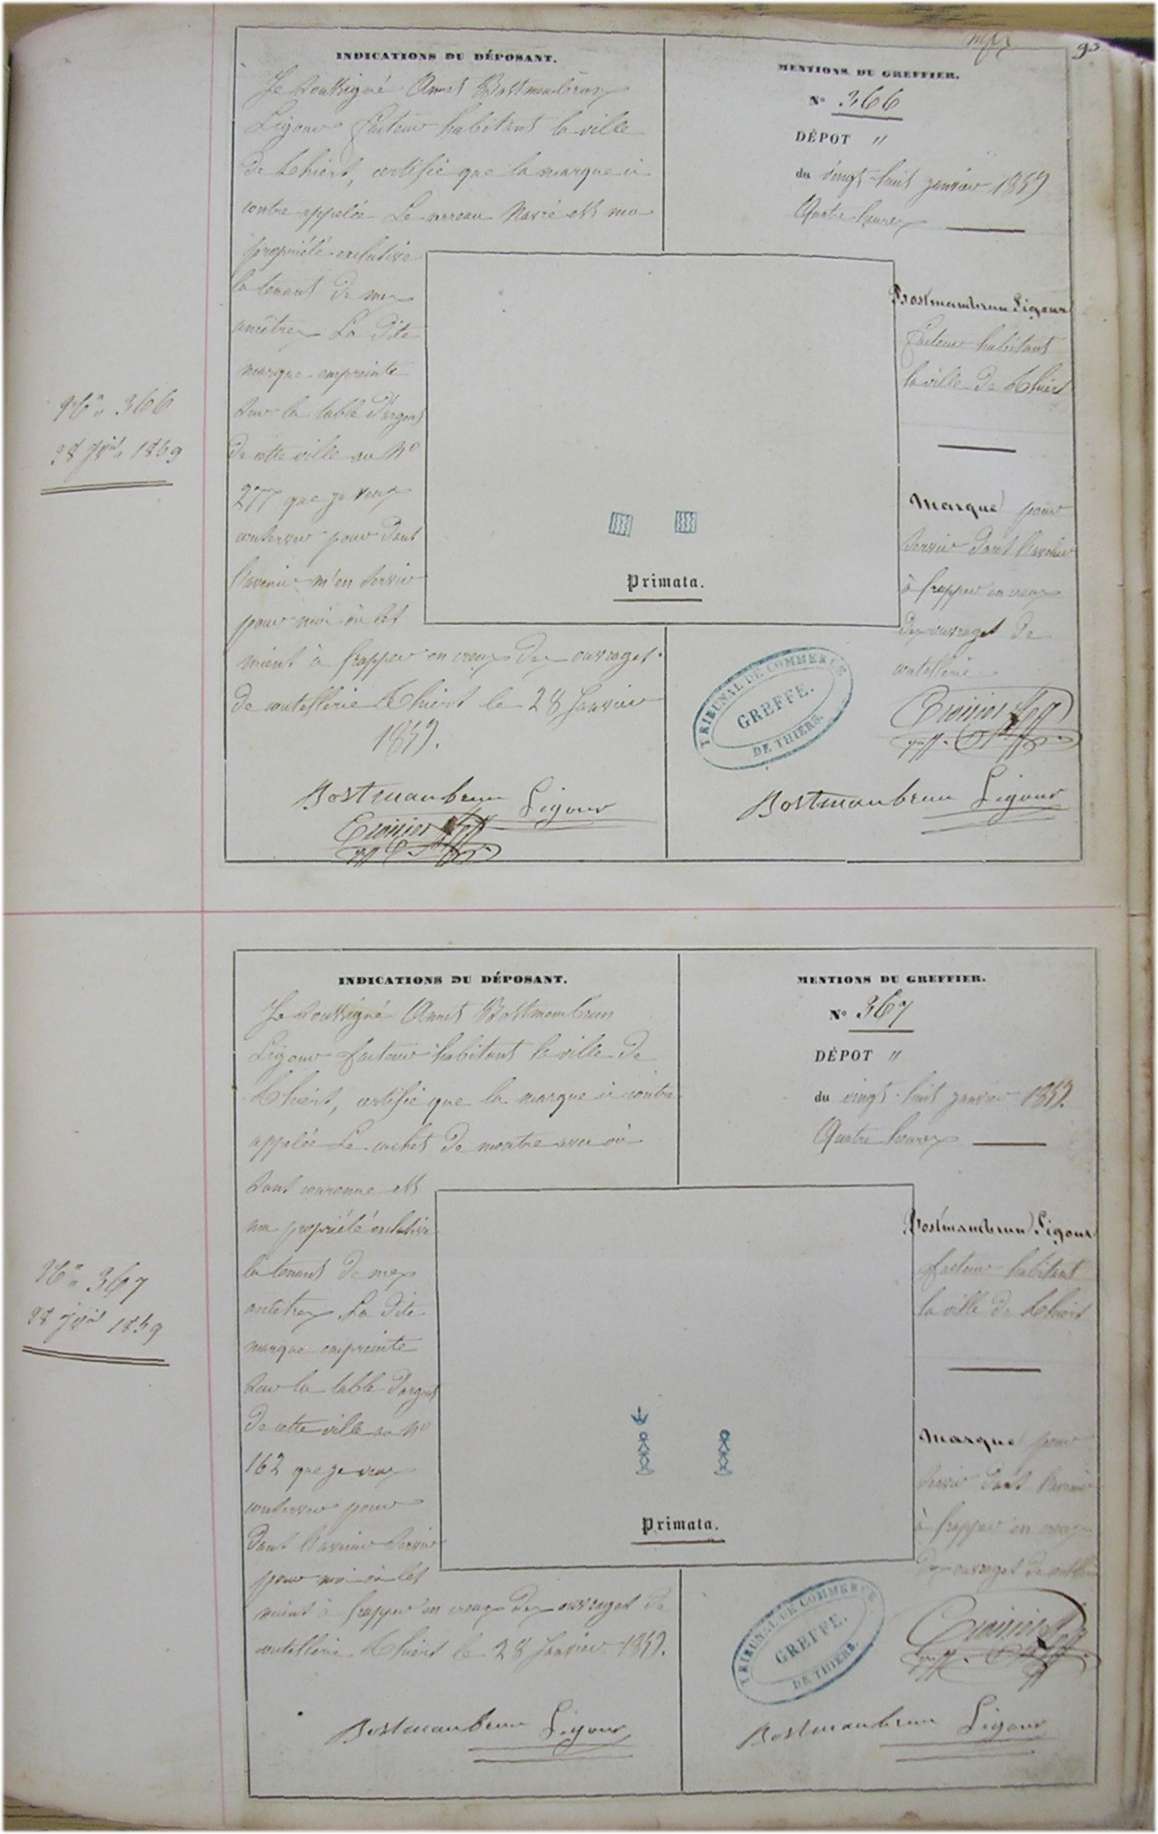 93
INDICATIONS DU DÉPOSANT.
Je soussigné Annet Bostmambrun
Ligour facteur habitant la ville
de Thiers, certifie que la marque ci
contre appelée Le carreau navré est ma
propriété exclusive
la tenant de mes
ancêtres La dite
marque empreinte
sur la table d'argent
de cette ville au No
277 que je veux
conserver pour dans
l'avenir m'en servir
pour moi ou les
miens à frapper en creux des ouvrages
de coutellerie Thiers le 28 Janvier
1859.
Bostmambrun Ligour
MENTIONS DU GREFFIER.
No 366
DÉPOT "
du vingt huit janvier 1859
Quatre heures
Bostmambrun Ligour
facteur habitant
la ville de Thiers
Marque pour
servir dans l'avenir
à frapper en creux
des ouvrages de
coutellerie
Primata.
TRIBUNAL DE COMMERCE
GREFFE.
DE THIERS.
Bostmambrun Ligour
No 366
28 jver 1859
INDICATIONS DU DÉPOSANT.
Je soussigné Annet Bostmambrun
Ligour facteur habitant la ville de
Thiers, certifie que la marque ci contre
appelée Le cachet de montre avec ou
sans couronne est
ma propriété exclusive
la tenant de mes
ancêtres La dite
marque empreinte
sur la table d'argent
de cette ville au No
162 que je veux
conserver pour
dans l'avenir servir
pour moi ou les
miens à frapper en creux des ouvrages de
coutellerie Thiers le 28 Janvier 1859.
Bostmambrun Ligour
MENTIONS DU GREFFIER.
No 367
DÉPOT "
du vingt huit janvier 1859.
Quatre heures
Bostmambrun Ligour
facteur habitant
la ville de Thiers
Marque pour
servir dans l'avenir
à frapper en creux
des ouvrages de
Primata.
TRIBUNAL DE COMMERCE
GREFFE.
DE THIERS.
Bostmambrun Ligour
No 367
28 jver 1859